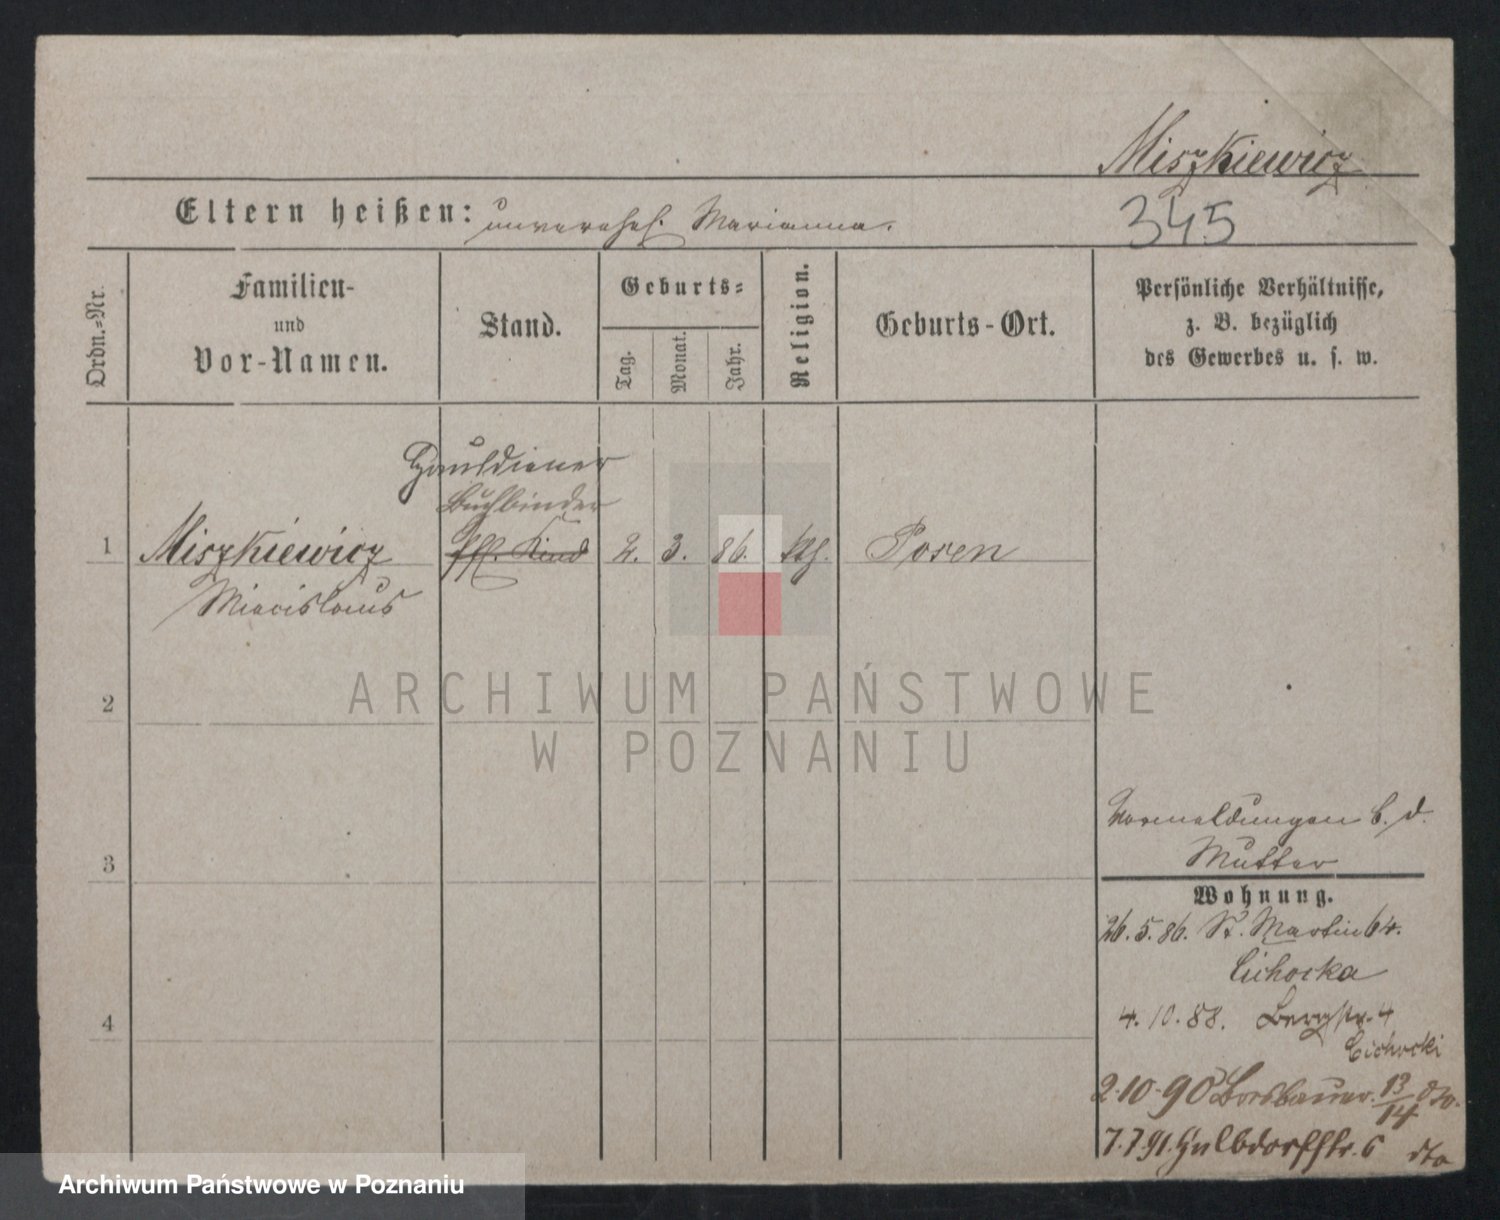 Miszkiewicz
Eltern heißen: unverehel. Marianna.
345
Ordn.-Nr.
Familien-
und
Vor-Namen.
Stand.
Geburts-
Tag.
Monat.
Jahr.
Religion.
Geburts-Ort.
Persönliche Verhältnisse,
z. B. bezüglich
des Gewerbes u. s. w.
Hausdiener
Buchbinder
1 Miszkiewicz pfl. Kind 2. 3. 86. kth. Posen
Miecislaus
ARCHIWUM PAŃSTWOWE
W POZNANIU
2
3
4
Vormeldungen b. d.
Mutter
Wohnung.
26. 5. 86. St. Martin 64.
Cichocka
4. 10. 88. Bergstr. 4
Cichocki
2. 10. 90 13/14
7. 7. 91. Halbdorfstr. 6 dto
Archiwum Państwowe w Poznaniu